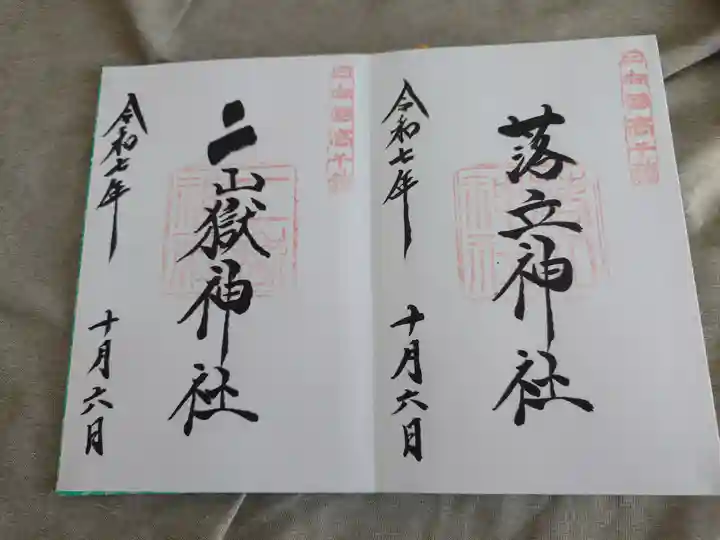 落立神社
令和七年
十月六日
二山嶽神社
令和七年
十月六日